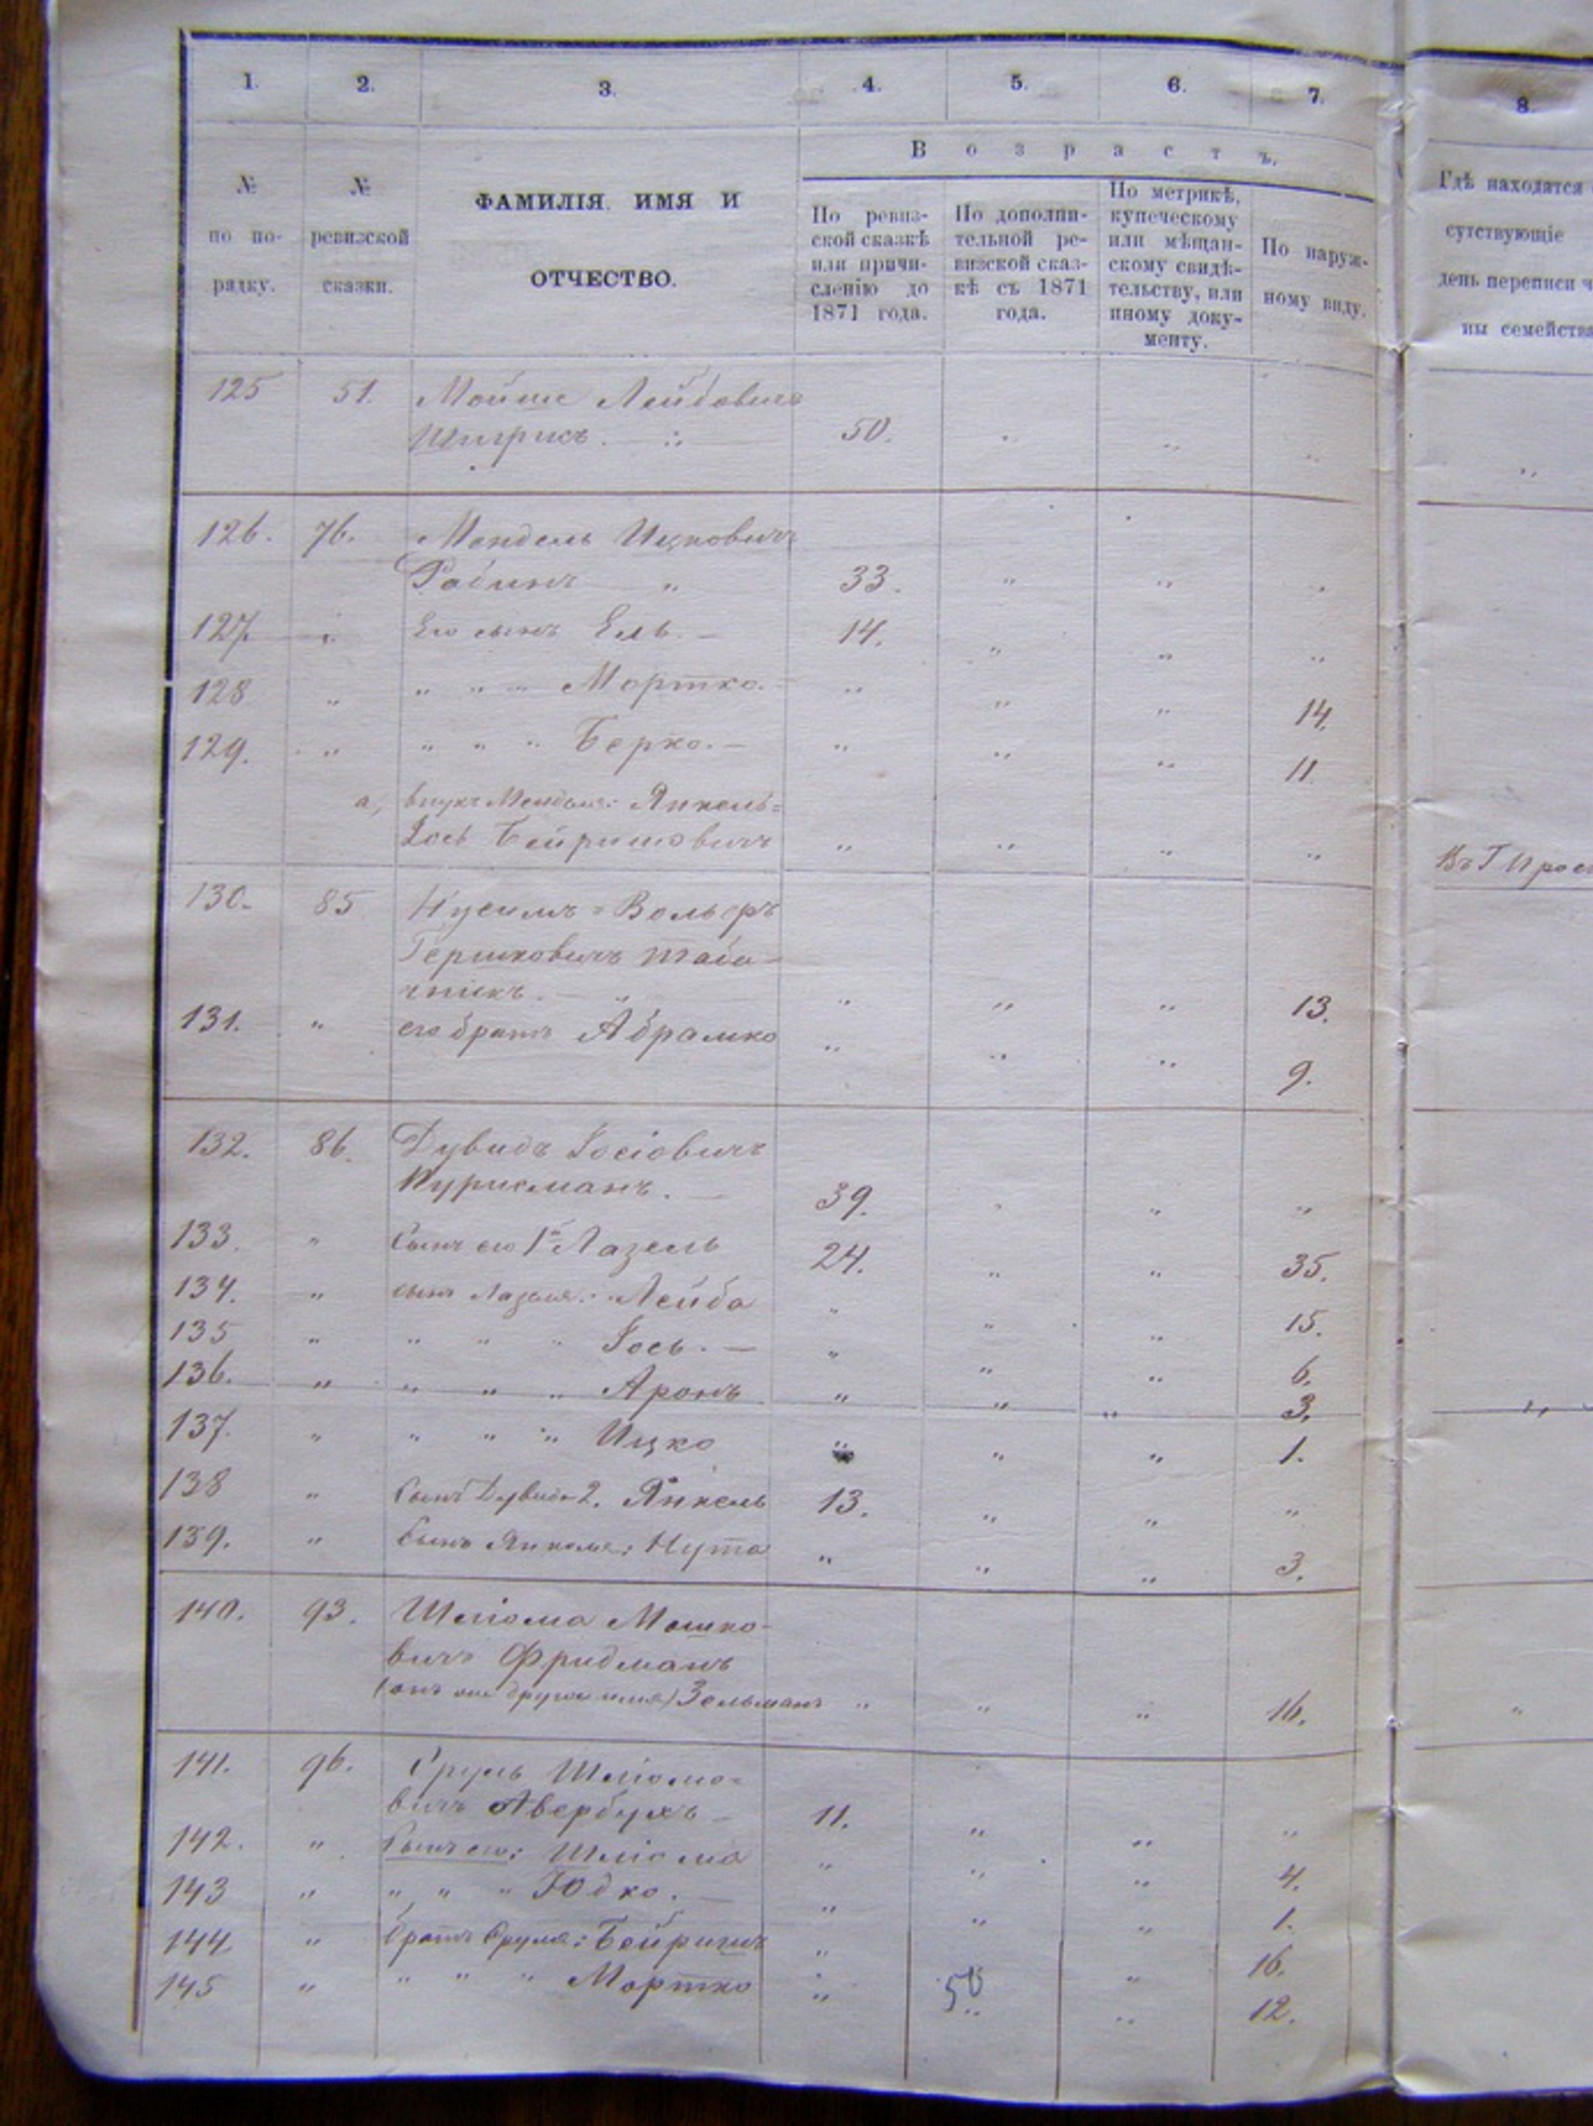 1. 2. 3. 4. 5. 6. 7. 8.
В о з р а с т ъ.
№ по по- рядку.
№ ревизской сказки.
ФАМИЛІЯ, ИМЯ И
ОТЧЕСТВО.
По ревиз-
ской сказкѣ
или причи-
сленію до
1871 года.
По дополни-
тельной ре-
визской сказ-
кѣ съ 1871
года.
По метрикѣ,
купеческому
или мѣщан-
скому свидѣ-
тельству, или
иному доку-
менту.
По наруж-
ному виду.
Гдѣ находятся
сутствующіе
день переписи ч
ны семейства
125 51. Мойше Лейбовичъ
Шприсъ. — „ 50. „ „ „ „
126. 76. Мендель Ицковичъ
Рабинъ „ 33. „ „ „
127. „ Его сынъ Ель. — 14. „ „ „
128 „ „ „ „ Мортко. — „ „ „ 14.
129. „ „ „ „ Берко. — „ „ „ 11.
а, внукъ Менделя: Янкель=
Іось Бейришовичъ „ „ „ „ Въ Г
130. 85 Нусимъ=Вольфъ
Гершковичъ Таба-
чникъ. — „ „ „ „ 13.
131. „ его братъ Абрамко „ „ „ 9.
132. 86. Дувидъ Іосіовичъ
39. „ „ „
133. „ Сынъ его 1й Лазель 24. „ „ 35.
134. „ сынъ Лазеля: Лейба „ „ „ 15.
135 „ „ „ „ Іось. — „ „ „ 6.
136. „ „ „ „ Аронъ „ „ „ 3. „
137. „ „ „ „ Ицко „ „ „ 1.
138 „ Сынъ Дувида 2. Янкель 13. „ „ „
139. „ Сынъ Янкеля: Нута „ „ „ 3.
140. 93. Шліома Мошко-
вичъ Фридманъ
(онъ же другое имя) Зельманъ „ „ „ 16. „
141. 96. Сруль Шліомо=
вичъ Авербухъ — 11. „ „ „
142. „ Сынъ его: Шліома „ „ „ 4.
143 „ „ „ „ Юдко. — „ „ „ 1.
144 „ братъ Сруля: Бейришъ „ „ „ 16.
145 „ „ „ „ Мортко „ 50 „ „ 12.